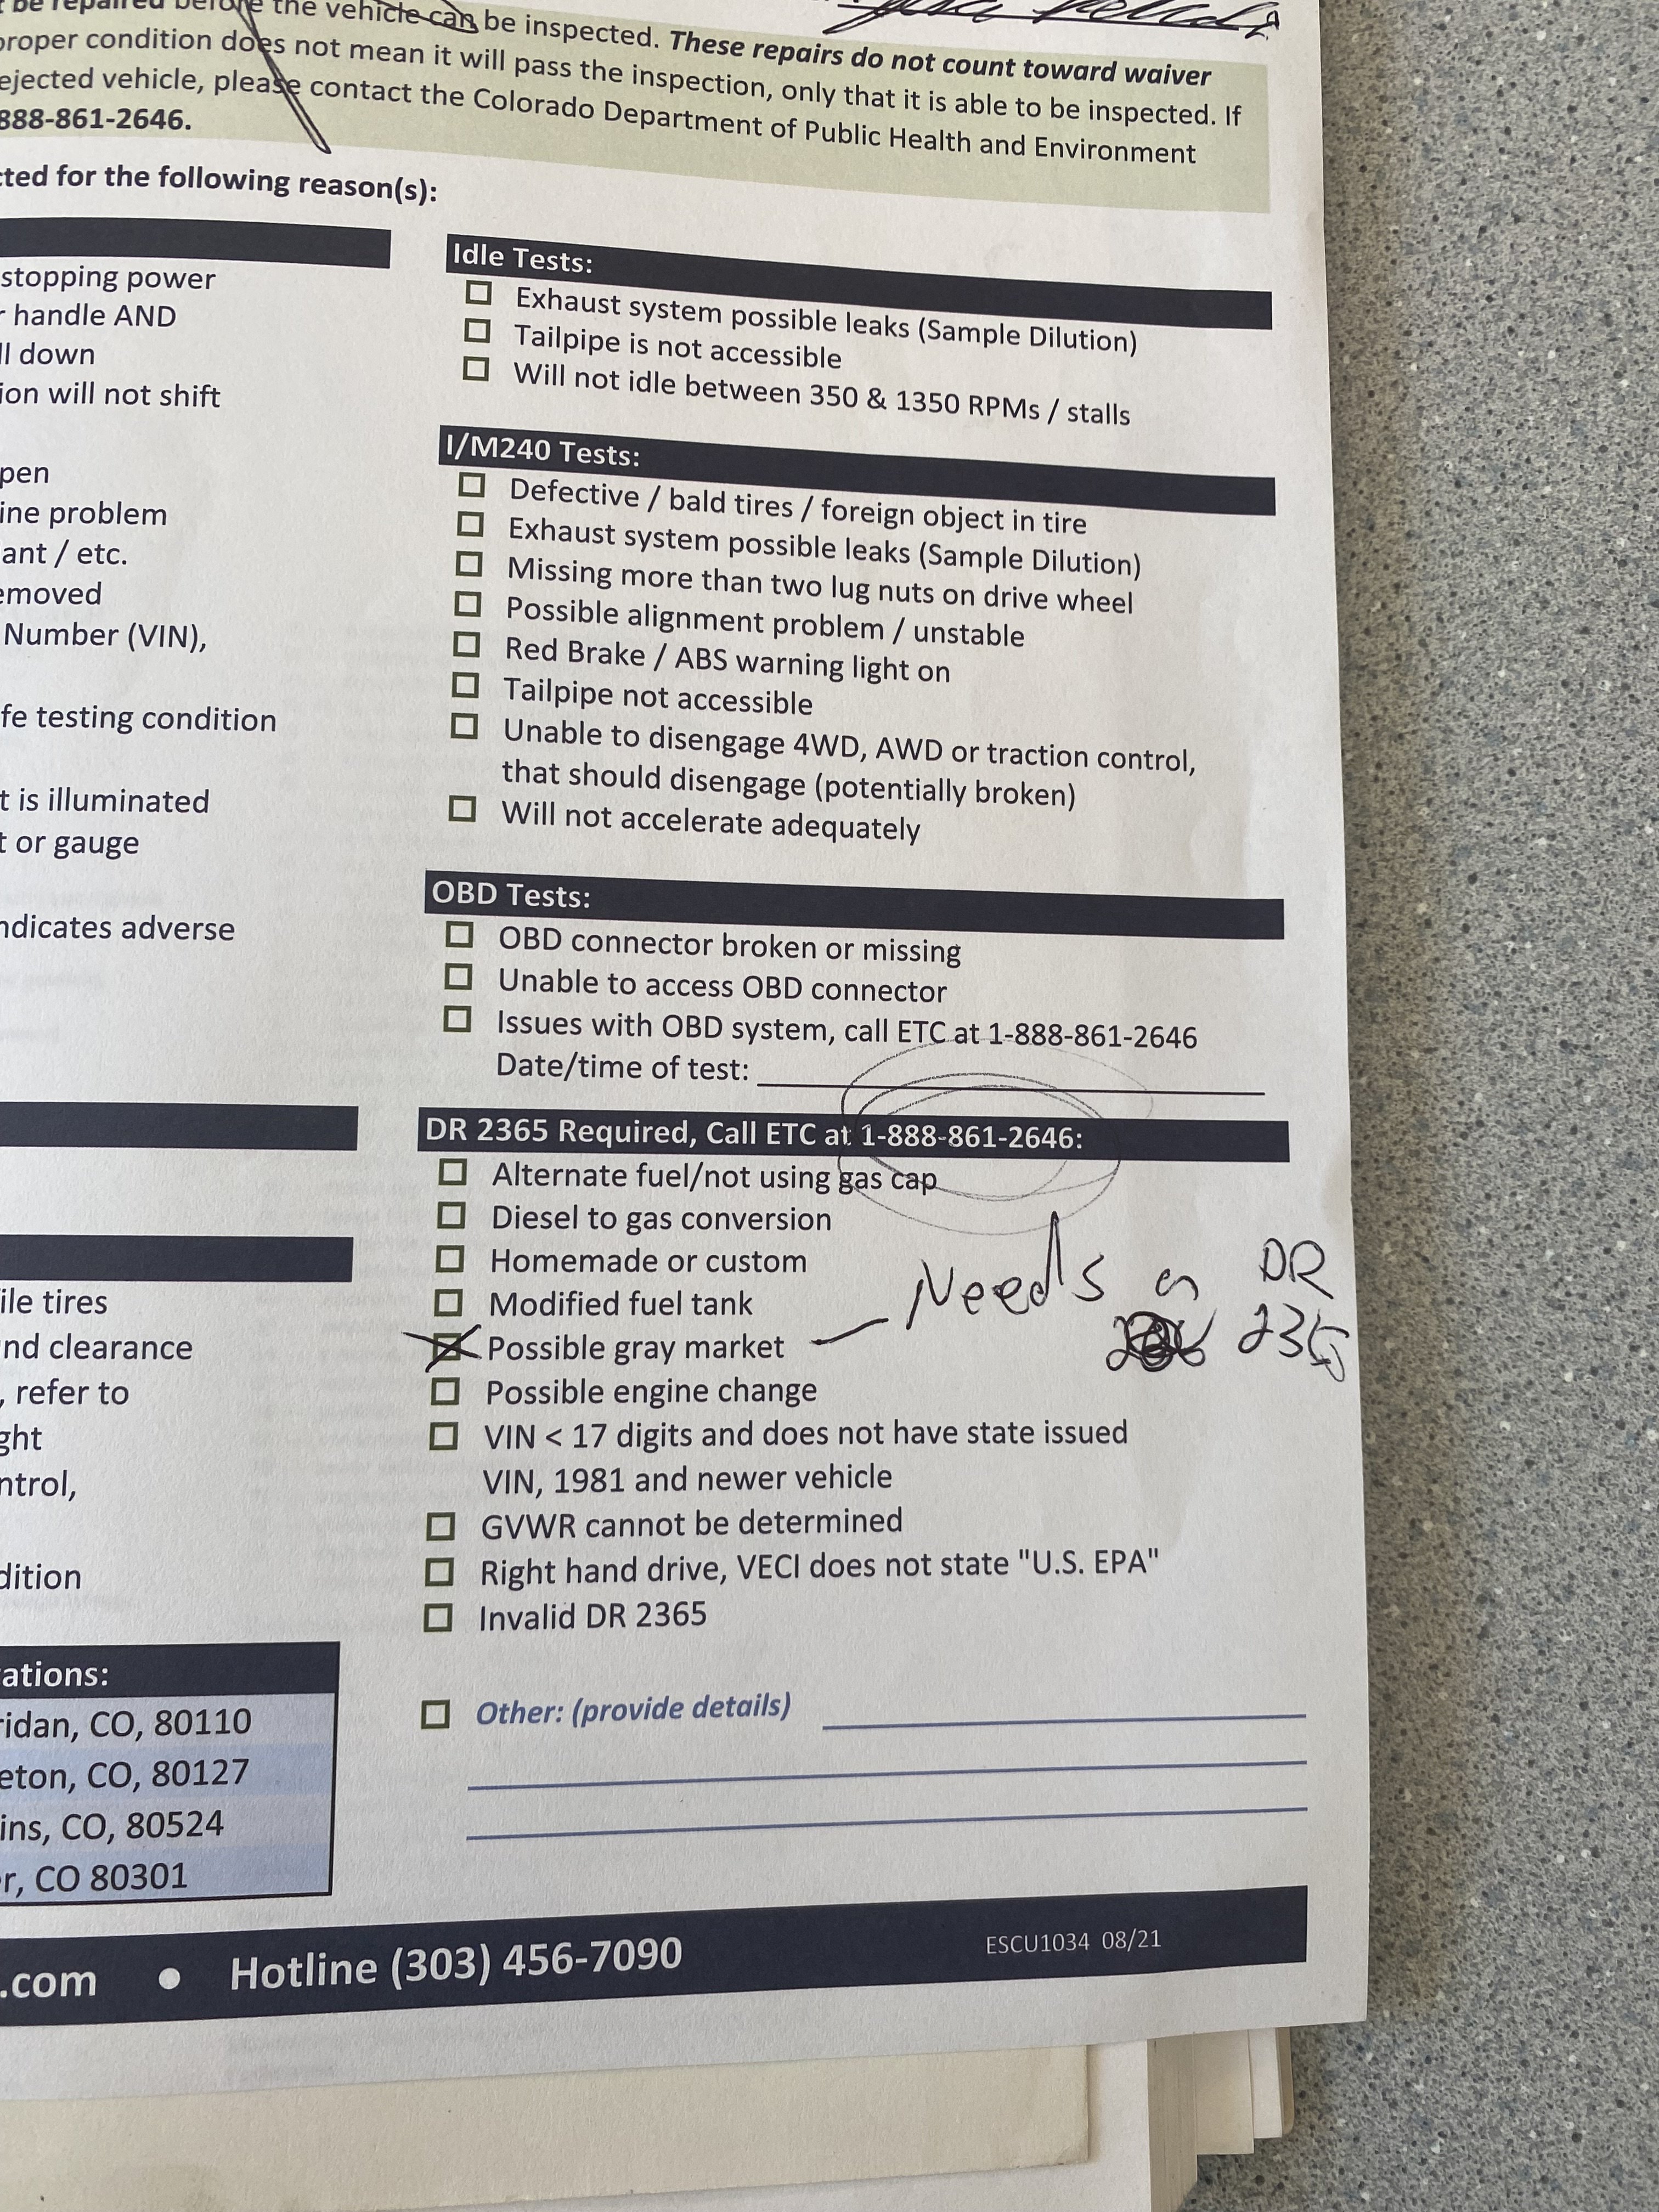 be repaired before the vehicle can be inspected. These repairs do not count toward waiver
proper condition does not mean it will pass the inspection, only that it is able to be inspected. If
ejected vehicle, please contact the Colorado Department of Public Health and Environment
888-861-2646.
cted for the following reason(s):
stopping power
r handle AND
ll down
ion will not shift
pen
ine problem
ant / etc.
emoved
Number (VIN),
fe testing condition
t is illuminated
t or gauge
ndicates adverse
ile tires
nd clearance
, refer to
ght
ntrol,
dition
ations:
ridan, CO, 80110
eton, CO, 80127
ins, CO, 80524
r, CO 80301
Idle Tests:
Exhaust system possible leaks (Sample Dilution)
Tailpipe is not accessible
Will not idle between 350 & 1350 RPMs / stalls
I/M240 Tests:
Defective / bald tires / foreign object in tire
Exhaust system possible leaks (Sample Dilution)
Missing more than two lug nuts on drive wheel
Possible alignment problem / unstable
Red Brake / ABS warning light on
Tailpipe not accessible
Unable to disengage 4WD, AWD or traction control,
that should disengage (potentially broken)
Will not accelerate adequately
OBD Tests:
OBD connector broken or missing
Unable to access OBD connector
Issues with OBD system, call ETC at 1-888-861-2646
Date/time of test:
DR 2365 Required, Call ETC at 1-888-861-2646:
Alternate fuel/not using gas cap
Diesel to gas conversion
Homemade or custom
Modified fuel tank
Possible gray market
Needs a DR
235
Possible engine change
VIN < 17 digits and does not have state issued
VIN, 1981 and newer vehicle
GVWR cannot be determined
Right hand drive, VECI does not state "U.S. EPA"
Invalid DR 2365
Other: (provide details)
.com • Hotline (303) 456-7090
ESCU1034 08/21